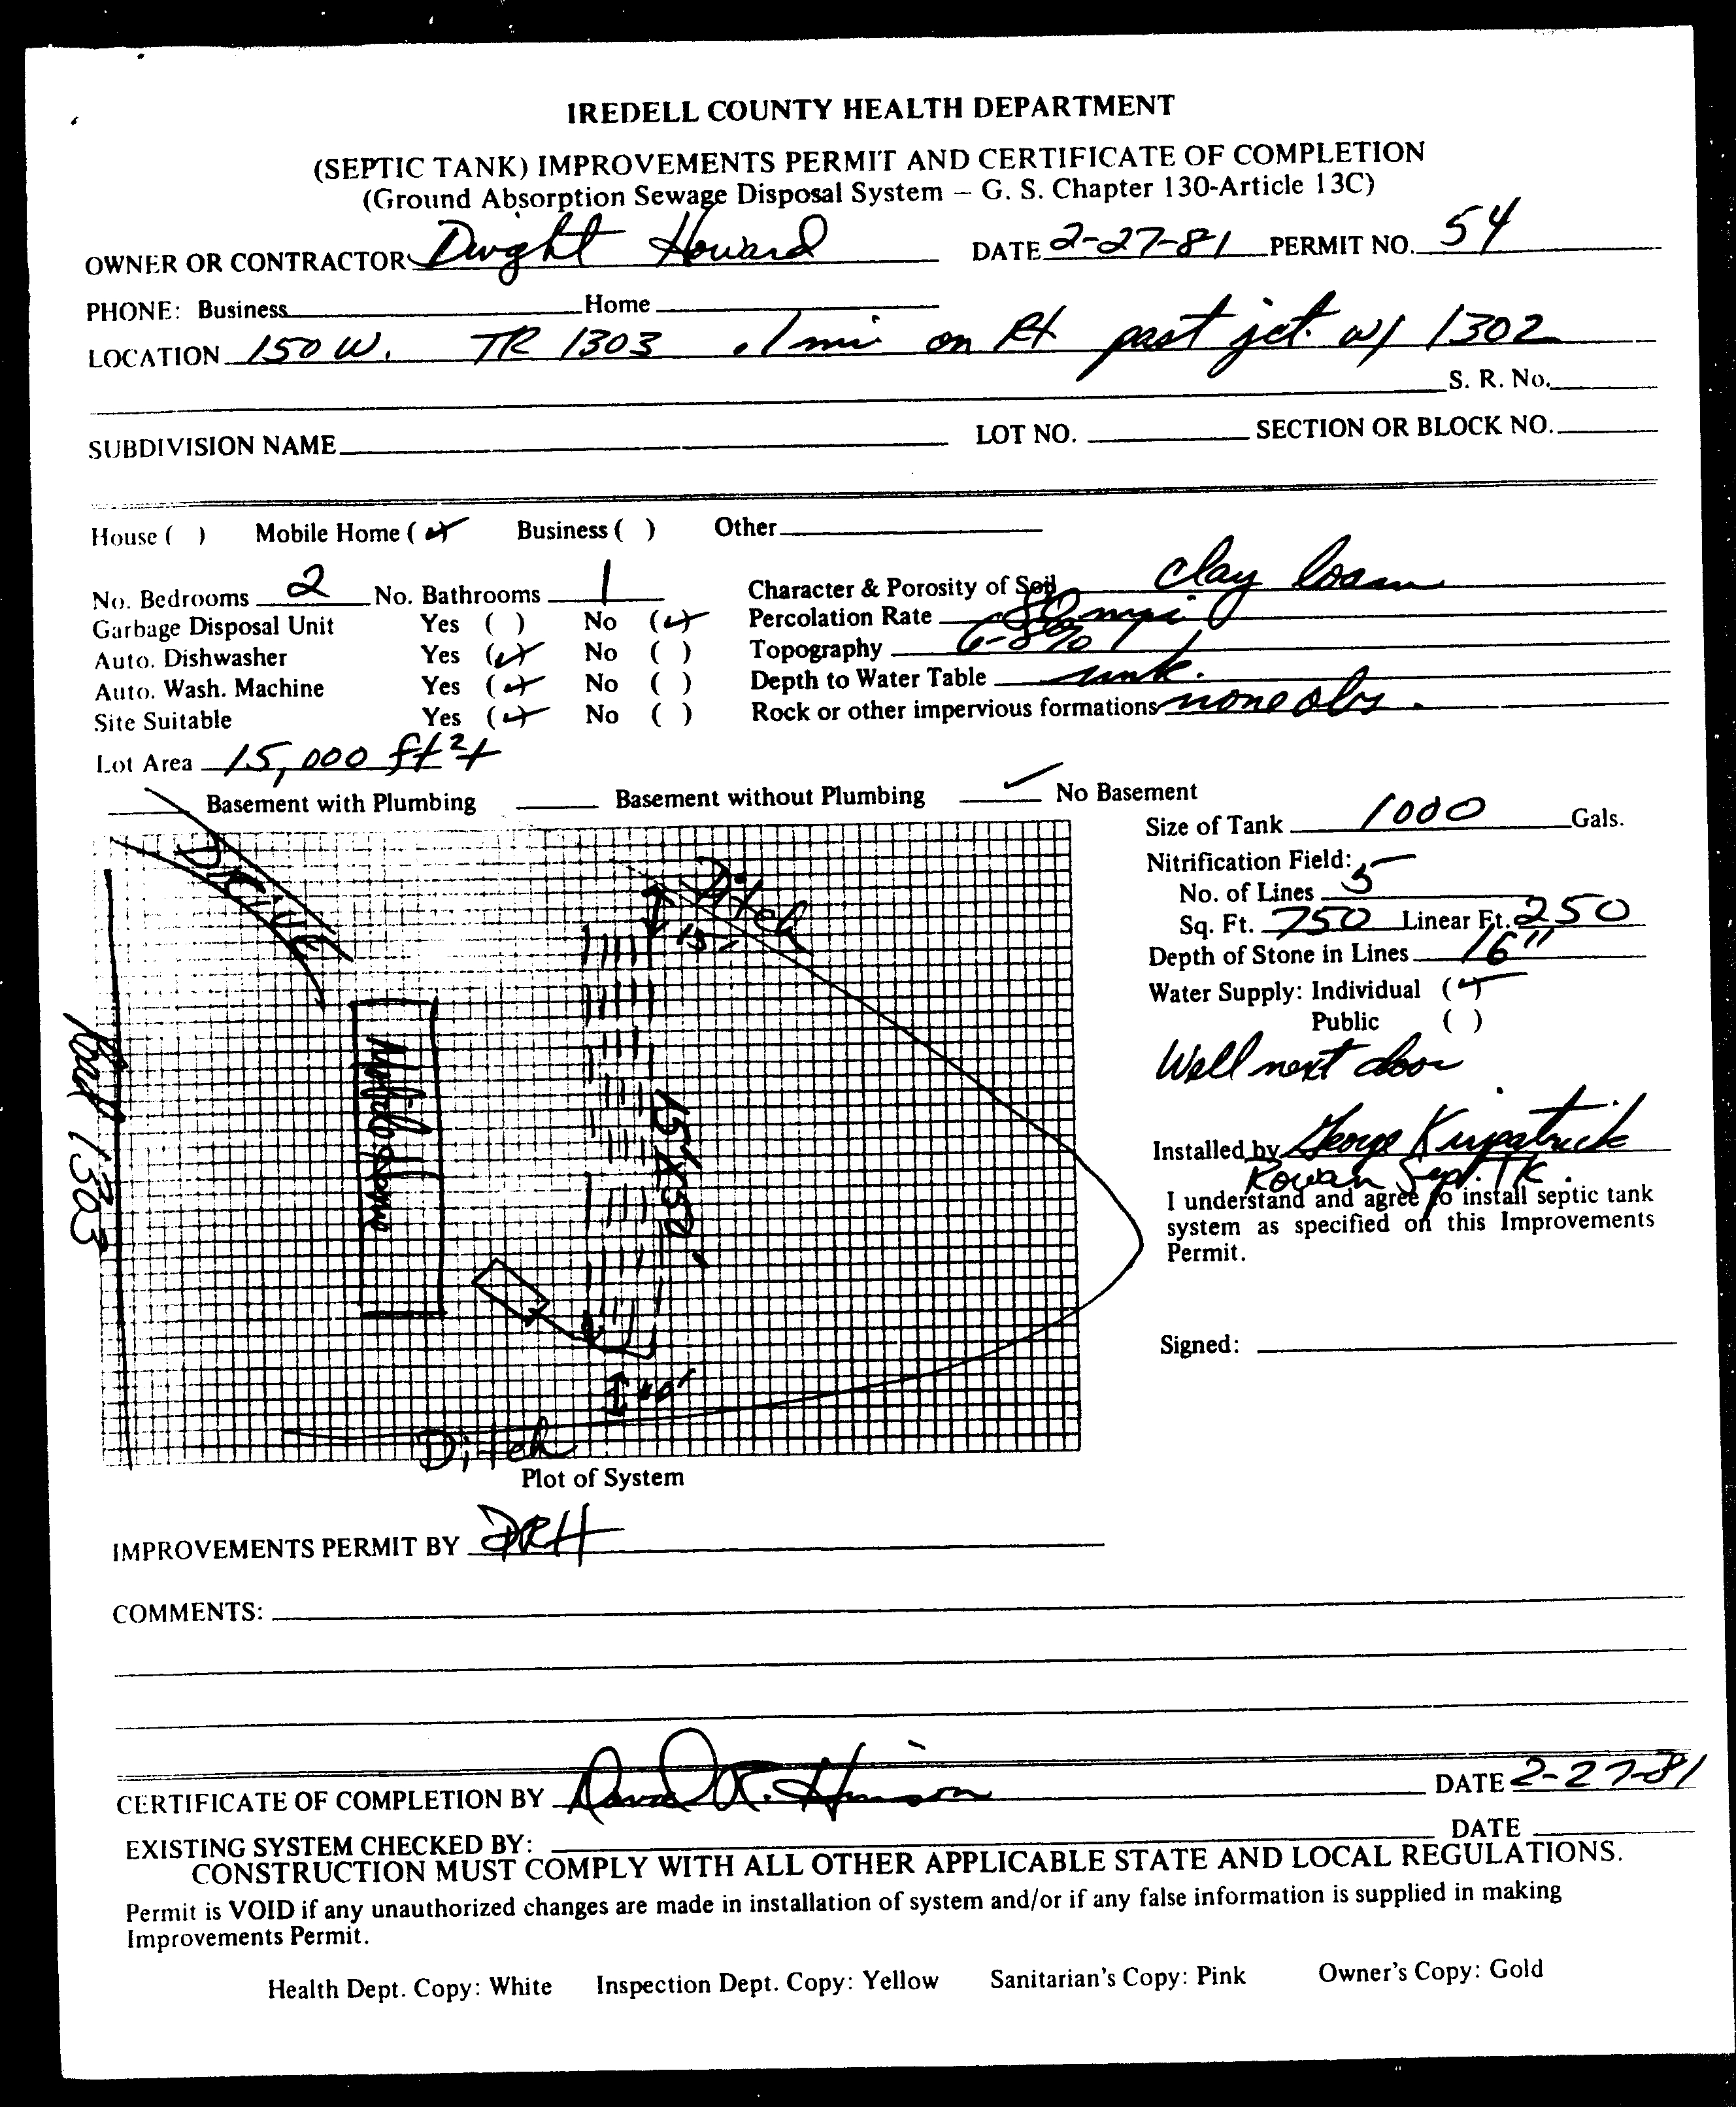 IREDELL COUNTY HEALTH DEPARTMENT
(SEPTIC TANK) IMPROVEMENTS PERMIT AND CERTIFICATE OF COMPLETION
(Ground Absorption Sewage Disposal System – G. S. Chapter 130-Article 13C)
OWNER OR CONTRACTOR Dwght Howard DATE 2-27-81 PERMIT NO. 54
PHONE: Business Home
LOCATION 150 W. TR 1303 .1 mi on Rt past jct. w/ 1302
S. R. No.
SUBDIVISION NAME LOT NO. SECTION OR BLOCK NO.
House ( ) Mobile Home (✓) Business ( ) Other
No. Bedrooms 2 No. Bathrooms 1 Character & Porosity of Soil clay loam
Garbage Disposal Unit Yes ( ) No (✓) Percolation Rate mpi
Auto. Dishwasher Yes (✓) No ( ) Topography 6-8%
Auto. Wash. Machine Yes (✓) No ( ) Depth to Water Table unk.
Site Suitable Yes (✓) No ( ) Rock or other impervious formations none obs.
Lot Area 15,000 ft²+
Basement with Plumbing Basement without Plumbing ✓ No Basement
Size of Tank 1000 Gals.
Nitrification Field:
No. of Lines 5
Sq. Ft. 750 Linear Ft. 250
Depth of Stone in Lines 16"
Water Supply: Individual (✓)
Public ( )
Well next door
Installed by George Kirpatrick
Rowan Sept. TK.
I understand and agree to install septic tank
system as specified on this Improvements
Permit.
Signed:
Drive
Ditch
15'
Road 1303
Mobile Home
15' x 50'
Ditch
Plot of System
IMPROVEMENTS PERMIT BY DRH
COMMENTS:
CERTIFICATE OF COMPLETION BY David R. Hinson DATE 2-27-81
EXISTING SYSTEM CHECKED BY: DATE
CONSTRUCTION MUST COMPLY WITH ALL OTHER APPLICABLE STATE AND LOCAL REGULATIONS.
Permit is VOID if any unauthorized changes are made in installation of system and/or if any false information is supplied in making
Improvements Permit.
Health Dept. Copy: White Inspection Dept. Copy: Yellow Sanitarian's Copy: Pink Owner's Copy: Gold